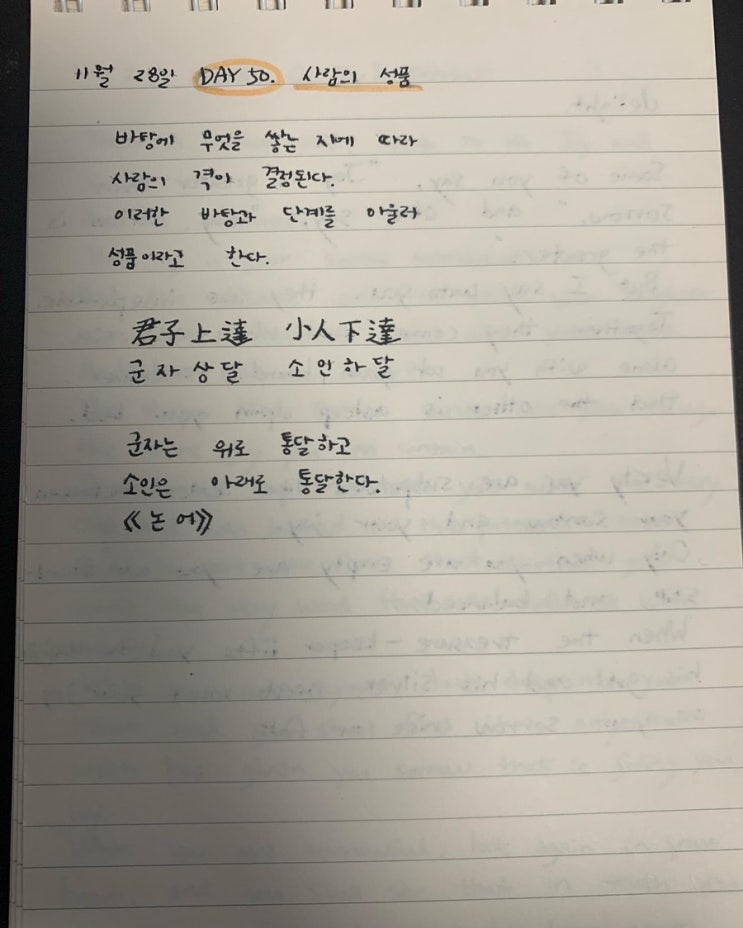 11월 28일 DAY 50. 사람의 성품
바탕에 무엇을 쌓는 지에 따라
사람의 격이 결정된다.
이러한 바탕과 단계를 아울러
성품이라고 한다.
君子上達 小人下達
군자상달 소인하달
군자는 위로 통달하고
소인은 아래로 통달한다.
《논어》